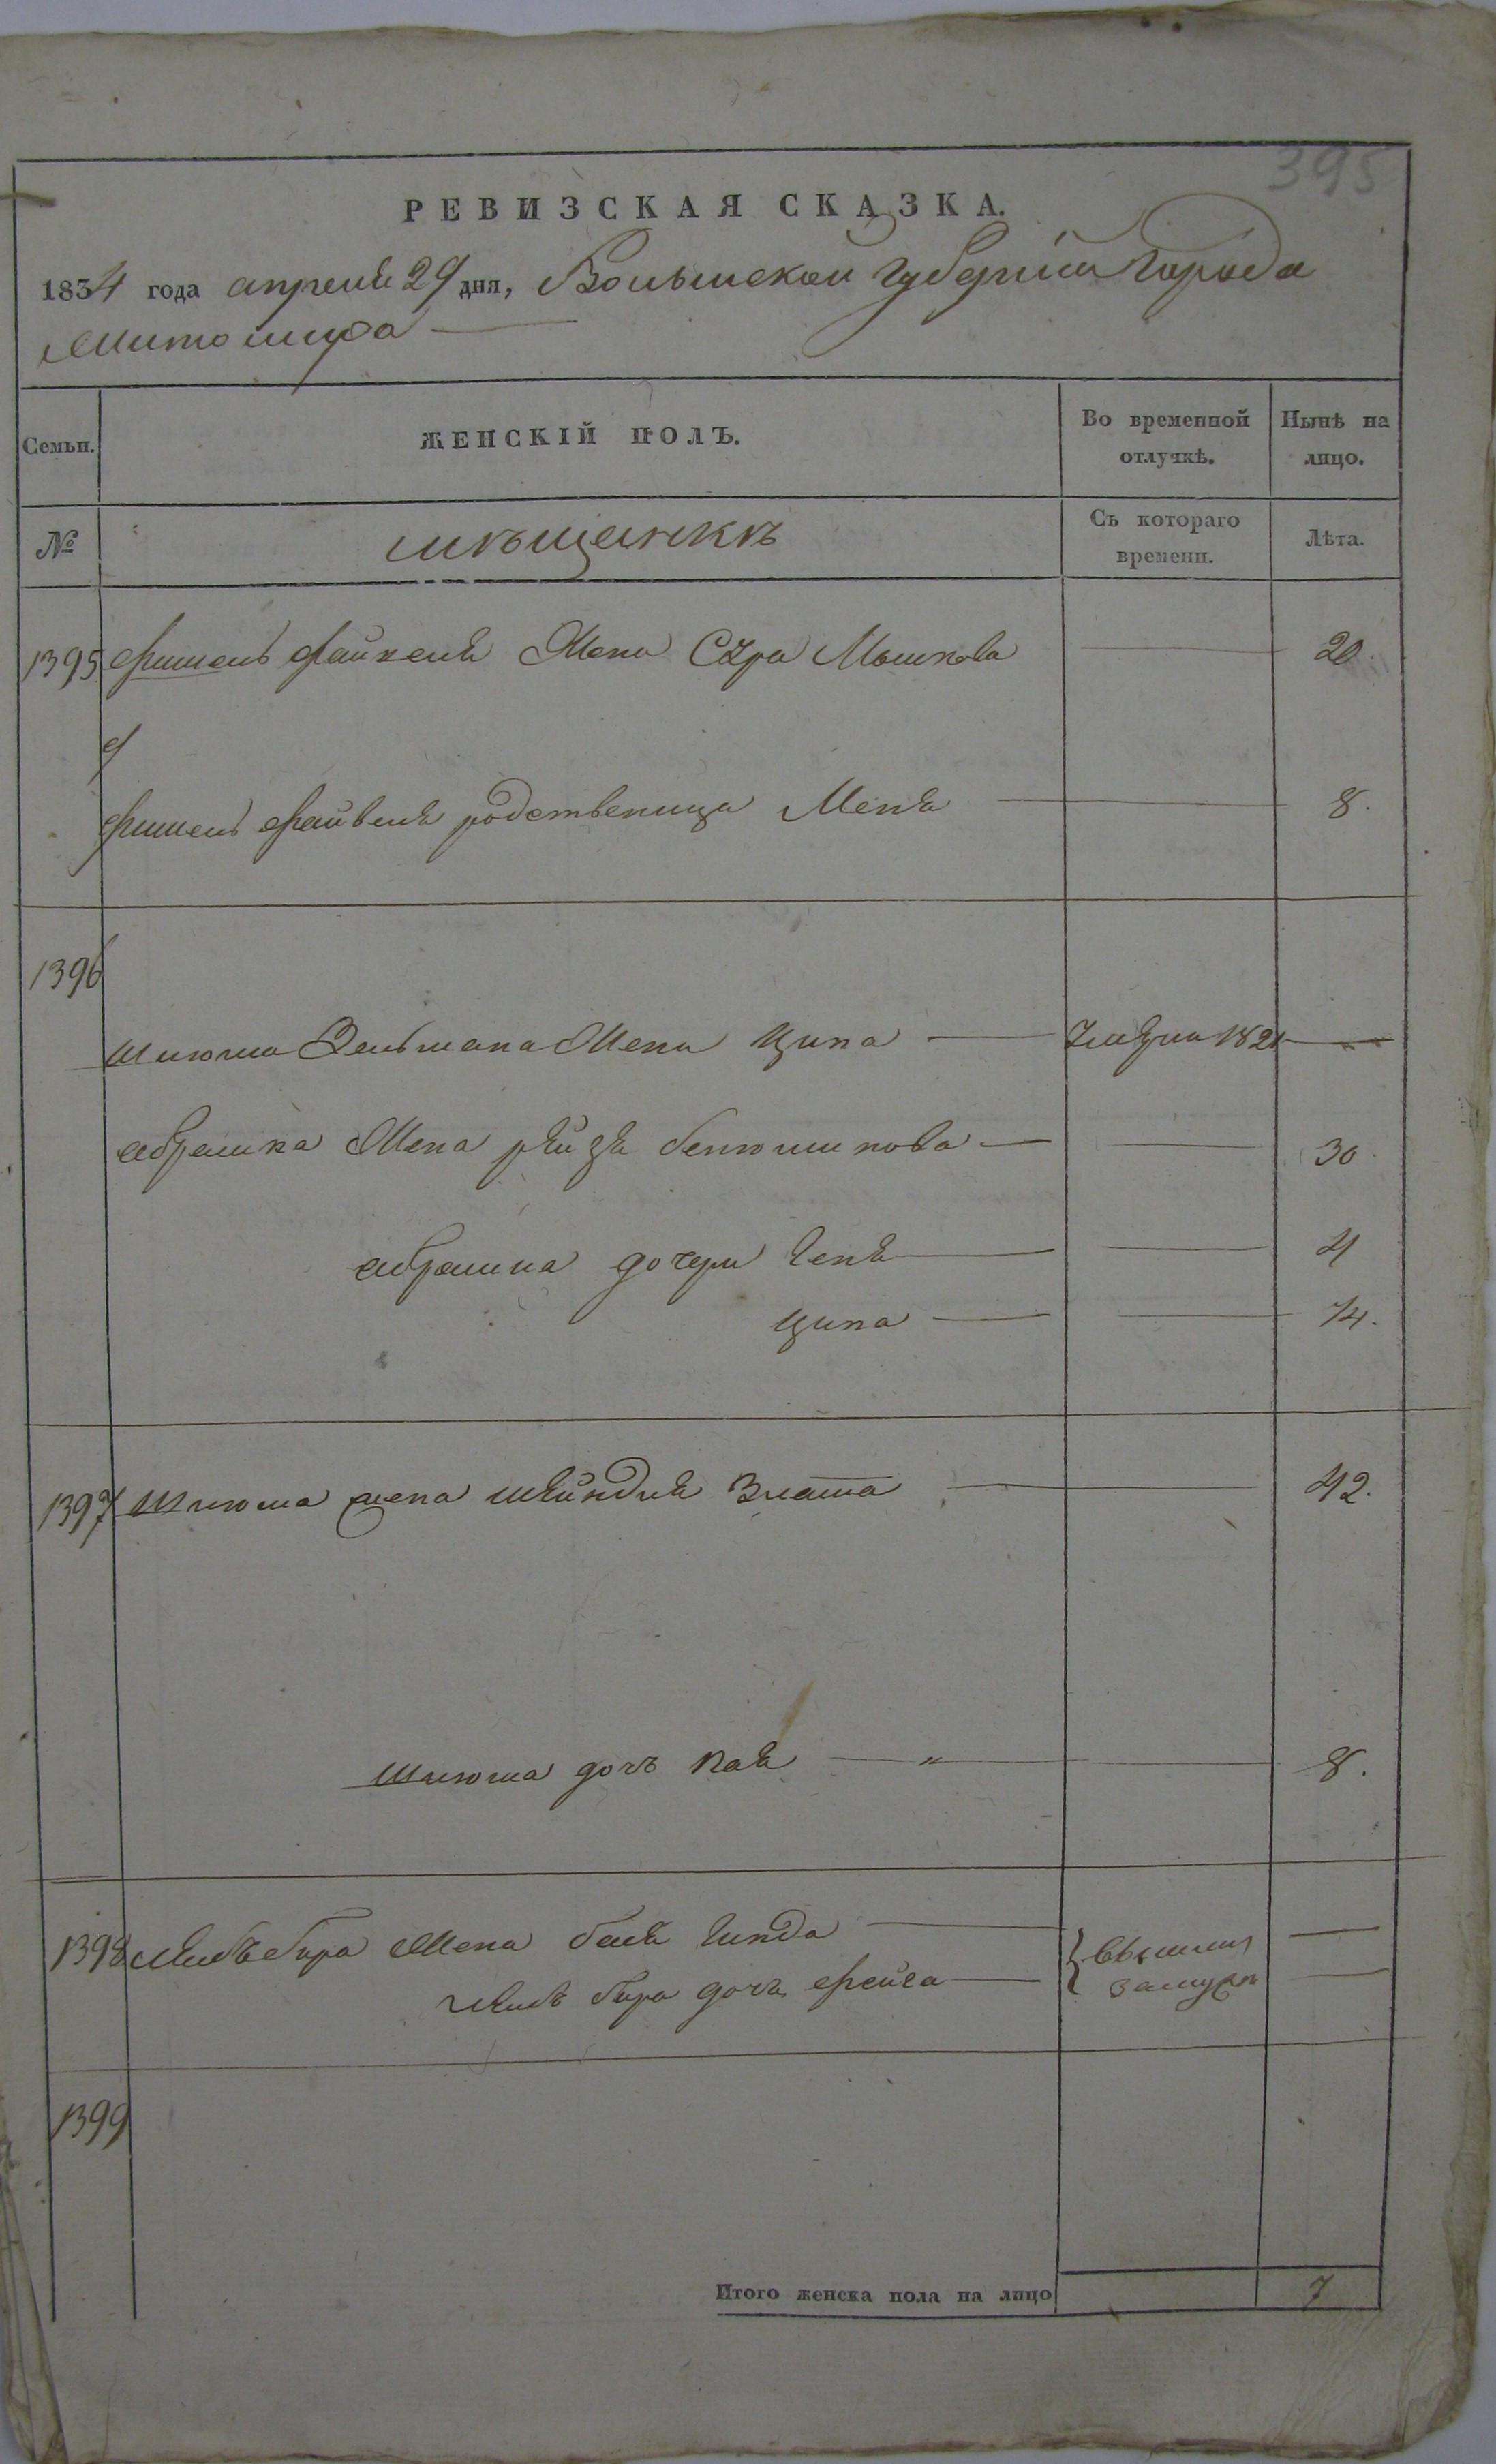 395
РЕВИЗСКАЯ СКАЗКА.
1834 года апреля 29 дня, Волынской губернiи города
Житомира
Семьи. ЖЕНСКIЙ ПОЛЪ. Во временной отлучкѣ. Нынѣ на лицо.
№ мѣщанкѣ Съ котораго времени. Лѣта.
1395 Фишель Файвеля Жена Сура Мошкова 20.
Фишель Файвеля родственица Меня 8.
1396
Шлюма Зельмана Жена Ципа 1821
Абрамка Жена рейзя бенюминова 30
Абрамка дочери Геня 4
Ципа
1397 Шлюма жена шейндля Злата 42.
Шлюма дочь Хая 8.
1398 Лейбъ бира Жена бейля Гинда вышли
Лейбъ бира дочь Фейга замужъ
1399
Итого женска пола на лицо 7